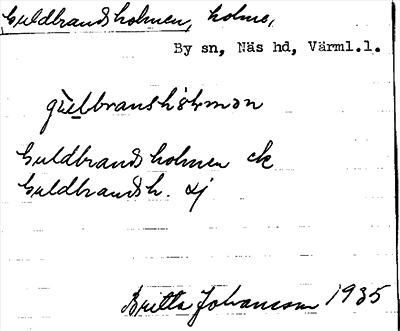 Guldbrandsholmen, holme,
By sn, Näs hd, Värml.l.
Guldbrandsholmen ek
Guldbrandsh. sj
Britta Johansson 1935